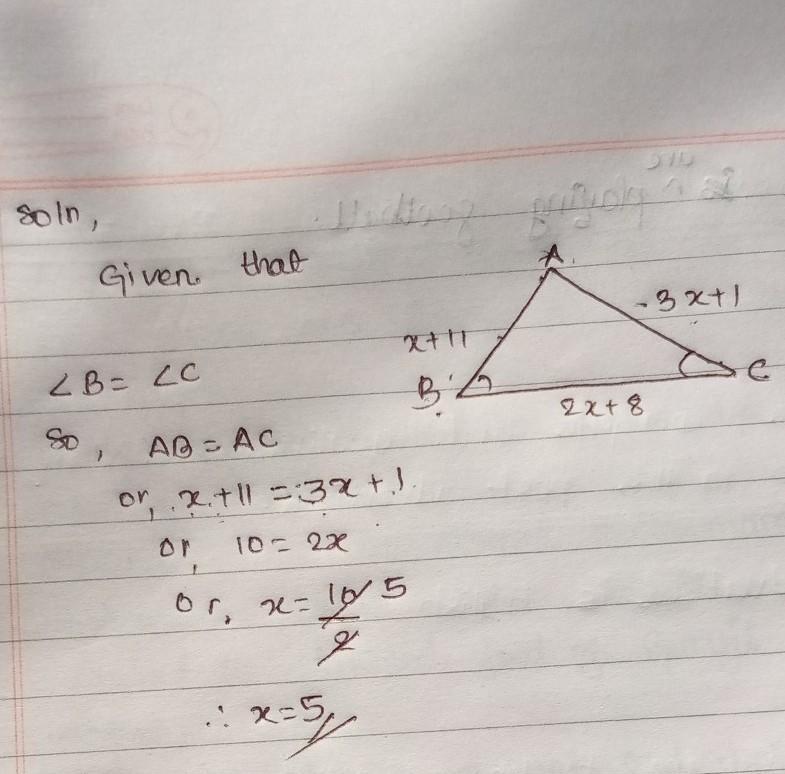 Soln,
Given that
A
3x+1
x+11
∠B = ∠C
B
C
2x+8
So, AB = AC
or, x+11 = 3x+1
or, 10 = 2x
or, x = 10/2 5
∴ x=5